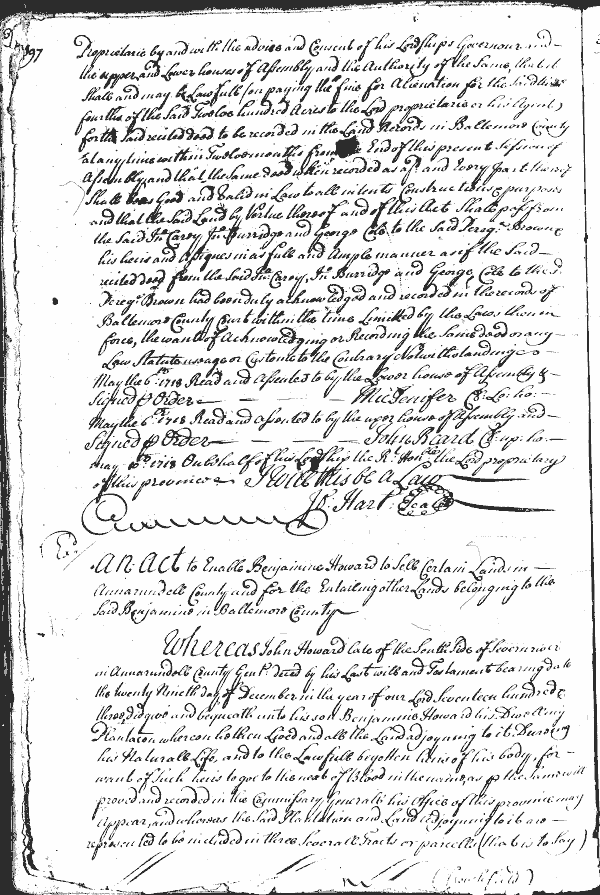 97
Proprietarie by and with the advice and Consent of his Lordships Governour and
the upper and Lower houses of Assembly and the Authority of the Same, that it
Shall and may be Lawfull (on paying the fine for Alienation for the Said
fourths of the Said Twelve hundred Acres to the Lord proprietarie or his Agent)
for the Said recited deed to be recorded in the Land Records in Baltemore County
at any time within Twelve months from End of this present Session of
Assembly, and that the Same deed when recorded as afd. and Every part thereof
Shall be Good and Valid in Law to all intents Constructions & purposes
and that the Said Land by Virtue thereof and of this Act Shall pass from
the Said Jno. Carey Jno. Burridge and George Cole to the Said Peregr. Browne
his heirs and assignes in as full and Ample manner as if the Said
recited deed from the Said Jno. Carey, Jno. Burridge and George Cole to the Sd.
Peregr. Brown had been duly acknowledged and recorded in the records of
Baltemore County Court within the time Limitted by the Laws then in
force, the want of Acknowledging or Recording the Same deed or any
Law Statute usage or Custome to the Contrary Notwithstanding
May the 6th. 1718 Read and Assented to by the Lower house of Assembly &
Signed p Order Mic: Jenifer Cl: Lo: ho:
May the 6th. 1718 Read and assented to by the uper house of Assembly and
Signed p Order John Beard Cl: up: ho:
may 10th 1718 On behalf of his Lordship the Rt. Honble. the Lord proprietary
of this province I will this be a Law
Jo: Hart Seal
Ex:
An Act to Enable Benjamine Howard to Sell Certain Lands in
Annarundell County and for the Entailing other Lands belonging to the
Said Benjamine in Baltemore County
Whereas John Howard late of the South Side of Severn river
in Annarundell County Gent. deced by his Last will and Testament bearing date
the twenty Nineth day of December in the year of our Lord Seventeen hundred &
three did give and bequeath unto his son Benjamine Howard his Dwelling
Plantacon whereon he then Lived and all the Land adjoyning to it During
his Naturall Life, and to the Lawfull begotten heires of his body, for
want of Such heirs to goe to the next of Blood in the name as p the Same will
proved and recorded in the Commissary Generalls his Office of this province may
Appear, and whereas the Said Plantation and Land adjoyning to it are
represented to be included in three Severall Tracts or parcells (that is to Say)